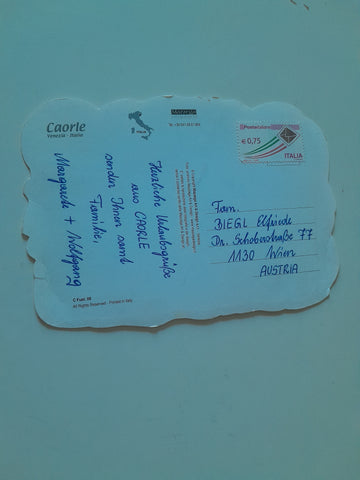 Caorle
Venezia - Italia
ITALIA
Posteitaliane
€ 0,75
ITALIA
Herzliche Urlaubsgrüße
aus CAORLE
senden Ihnen samt
Familie,
Margareth + Wolfgang
Fam.
BIEGL Elfriede
Dr. Schoberstraße 77
1130 Wien
AUSTRIA
All Rights Reserved - Printed in Italy